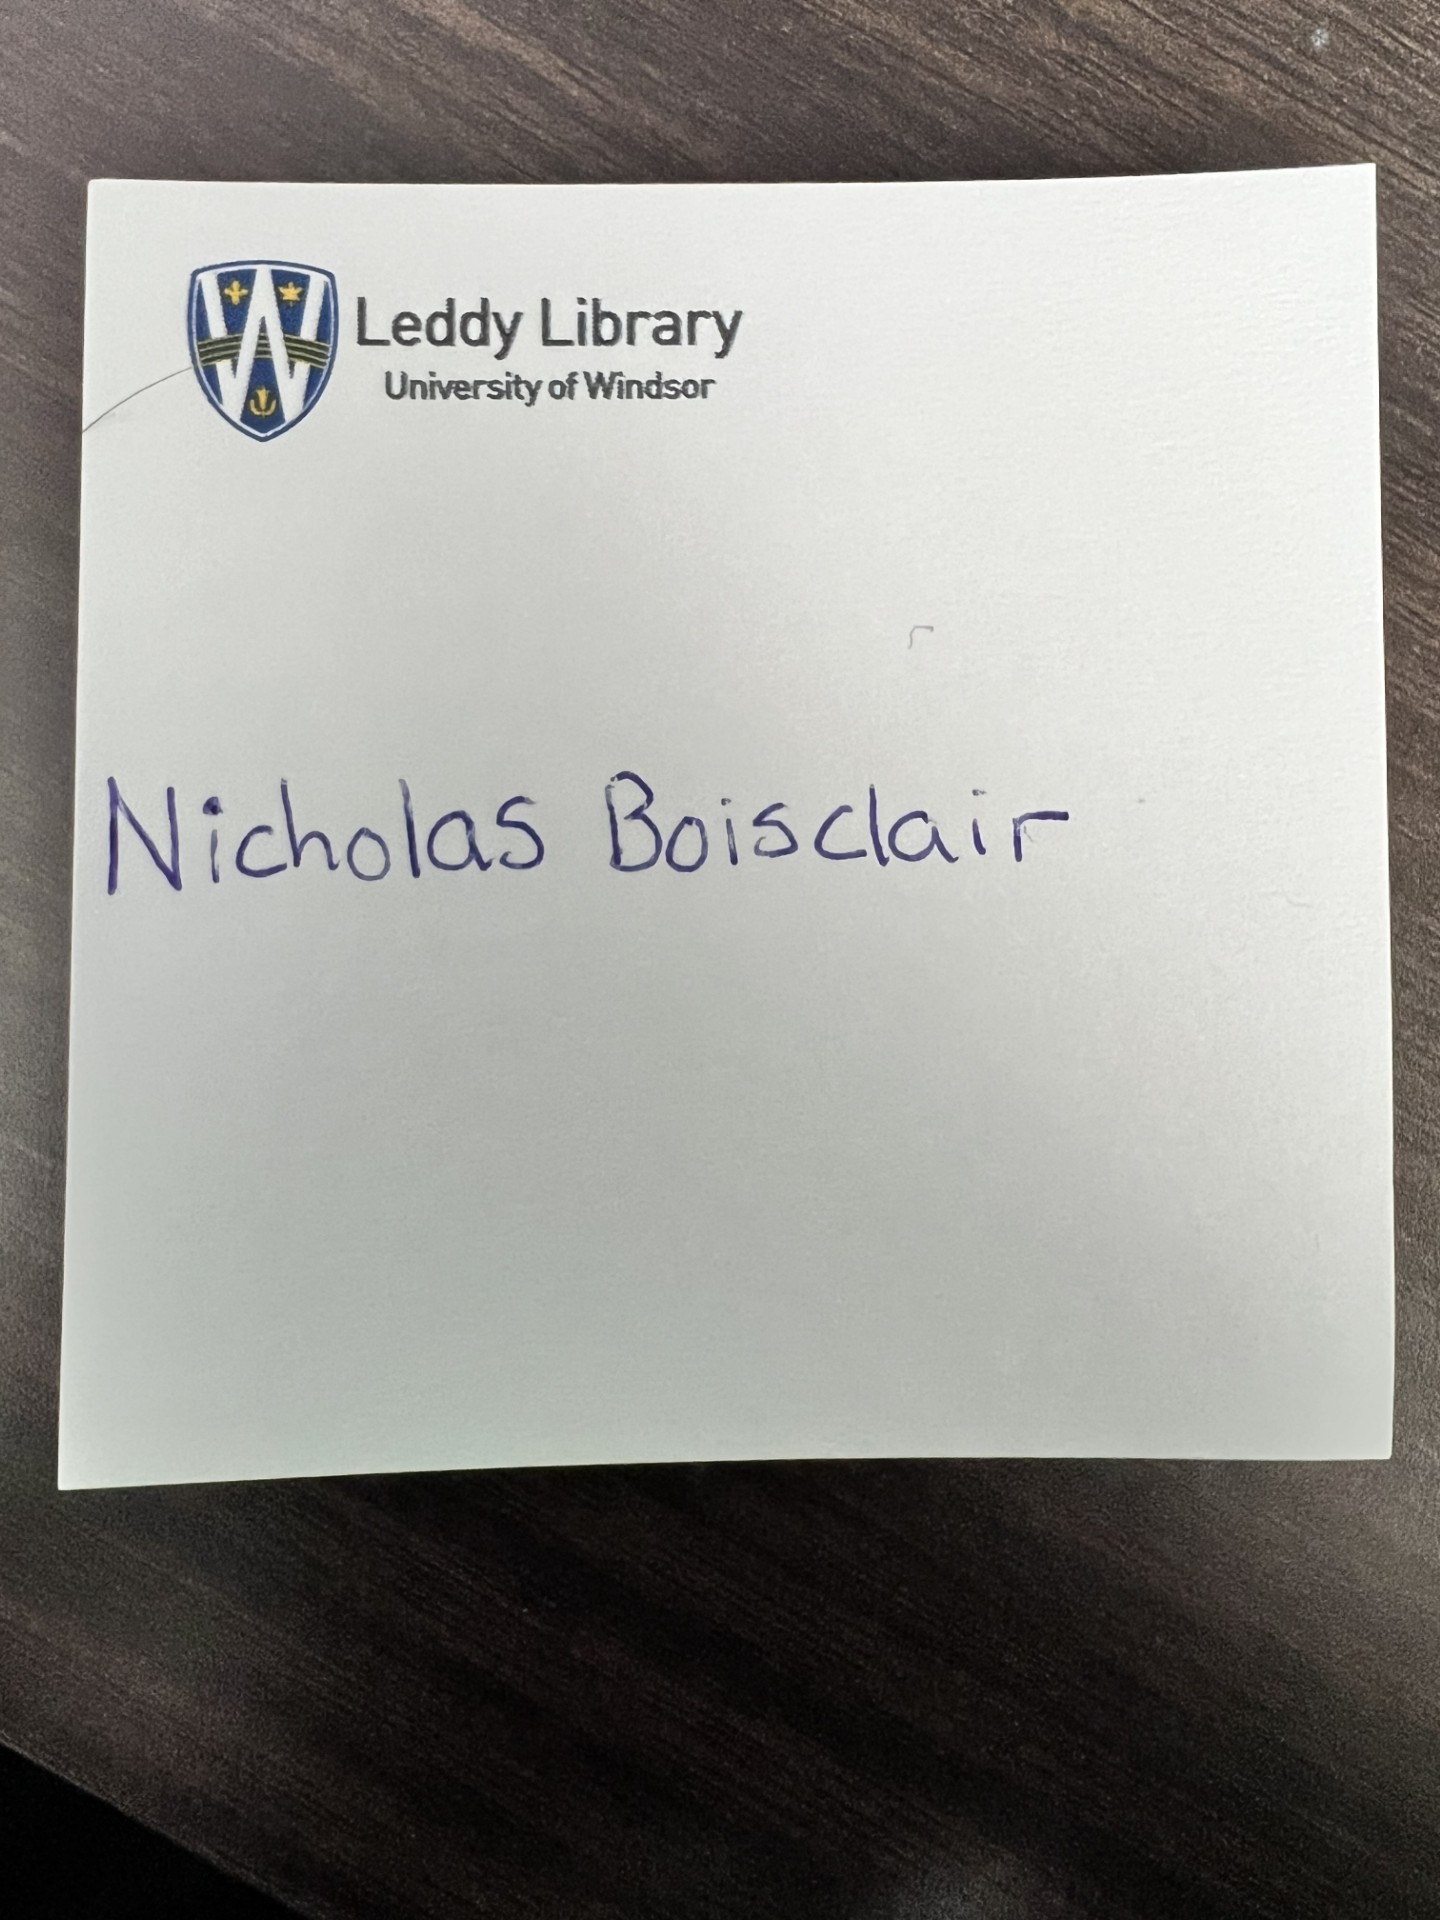 Leddy Library
University of Windsor
Nicholas Boisclair